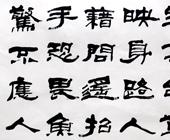 映身路人
藉問遙招
手恐畏魚
驚不應人